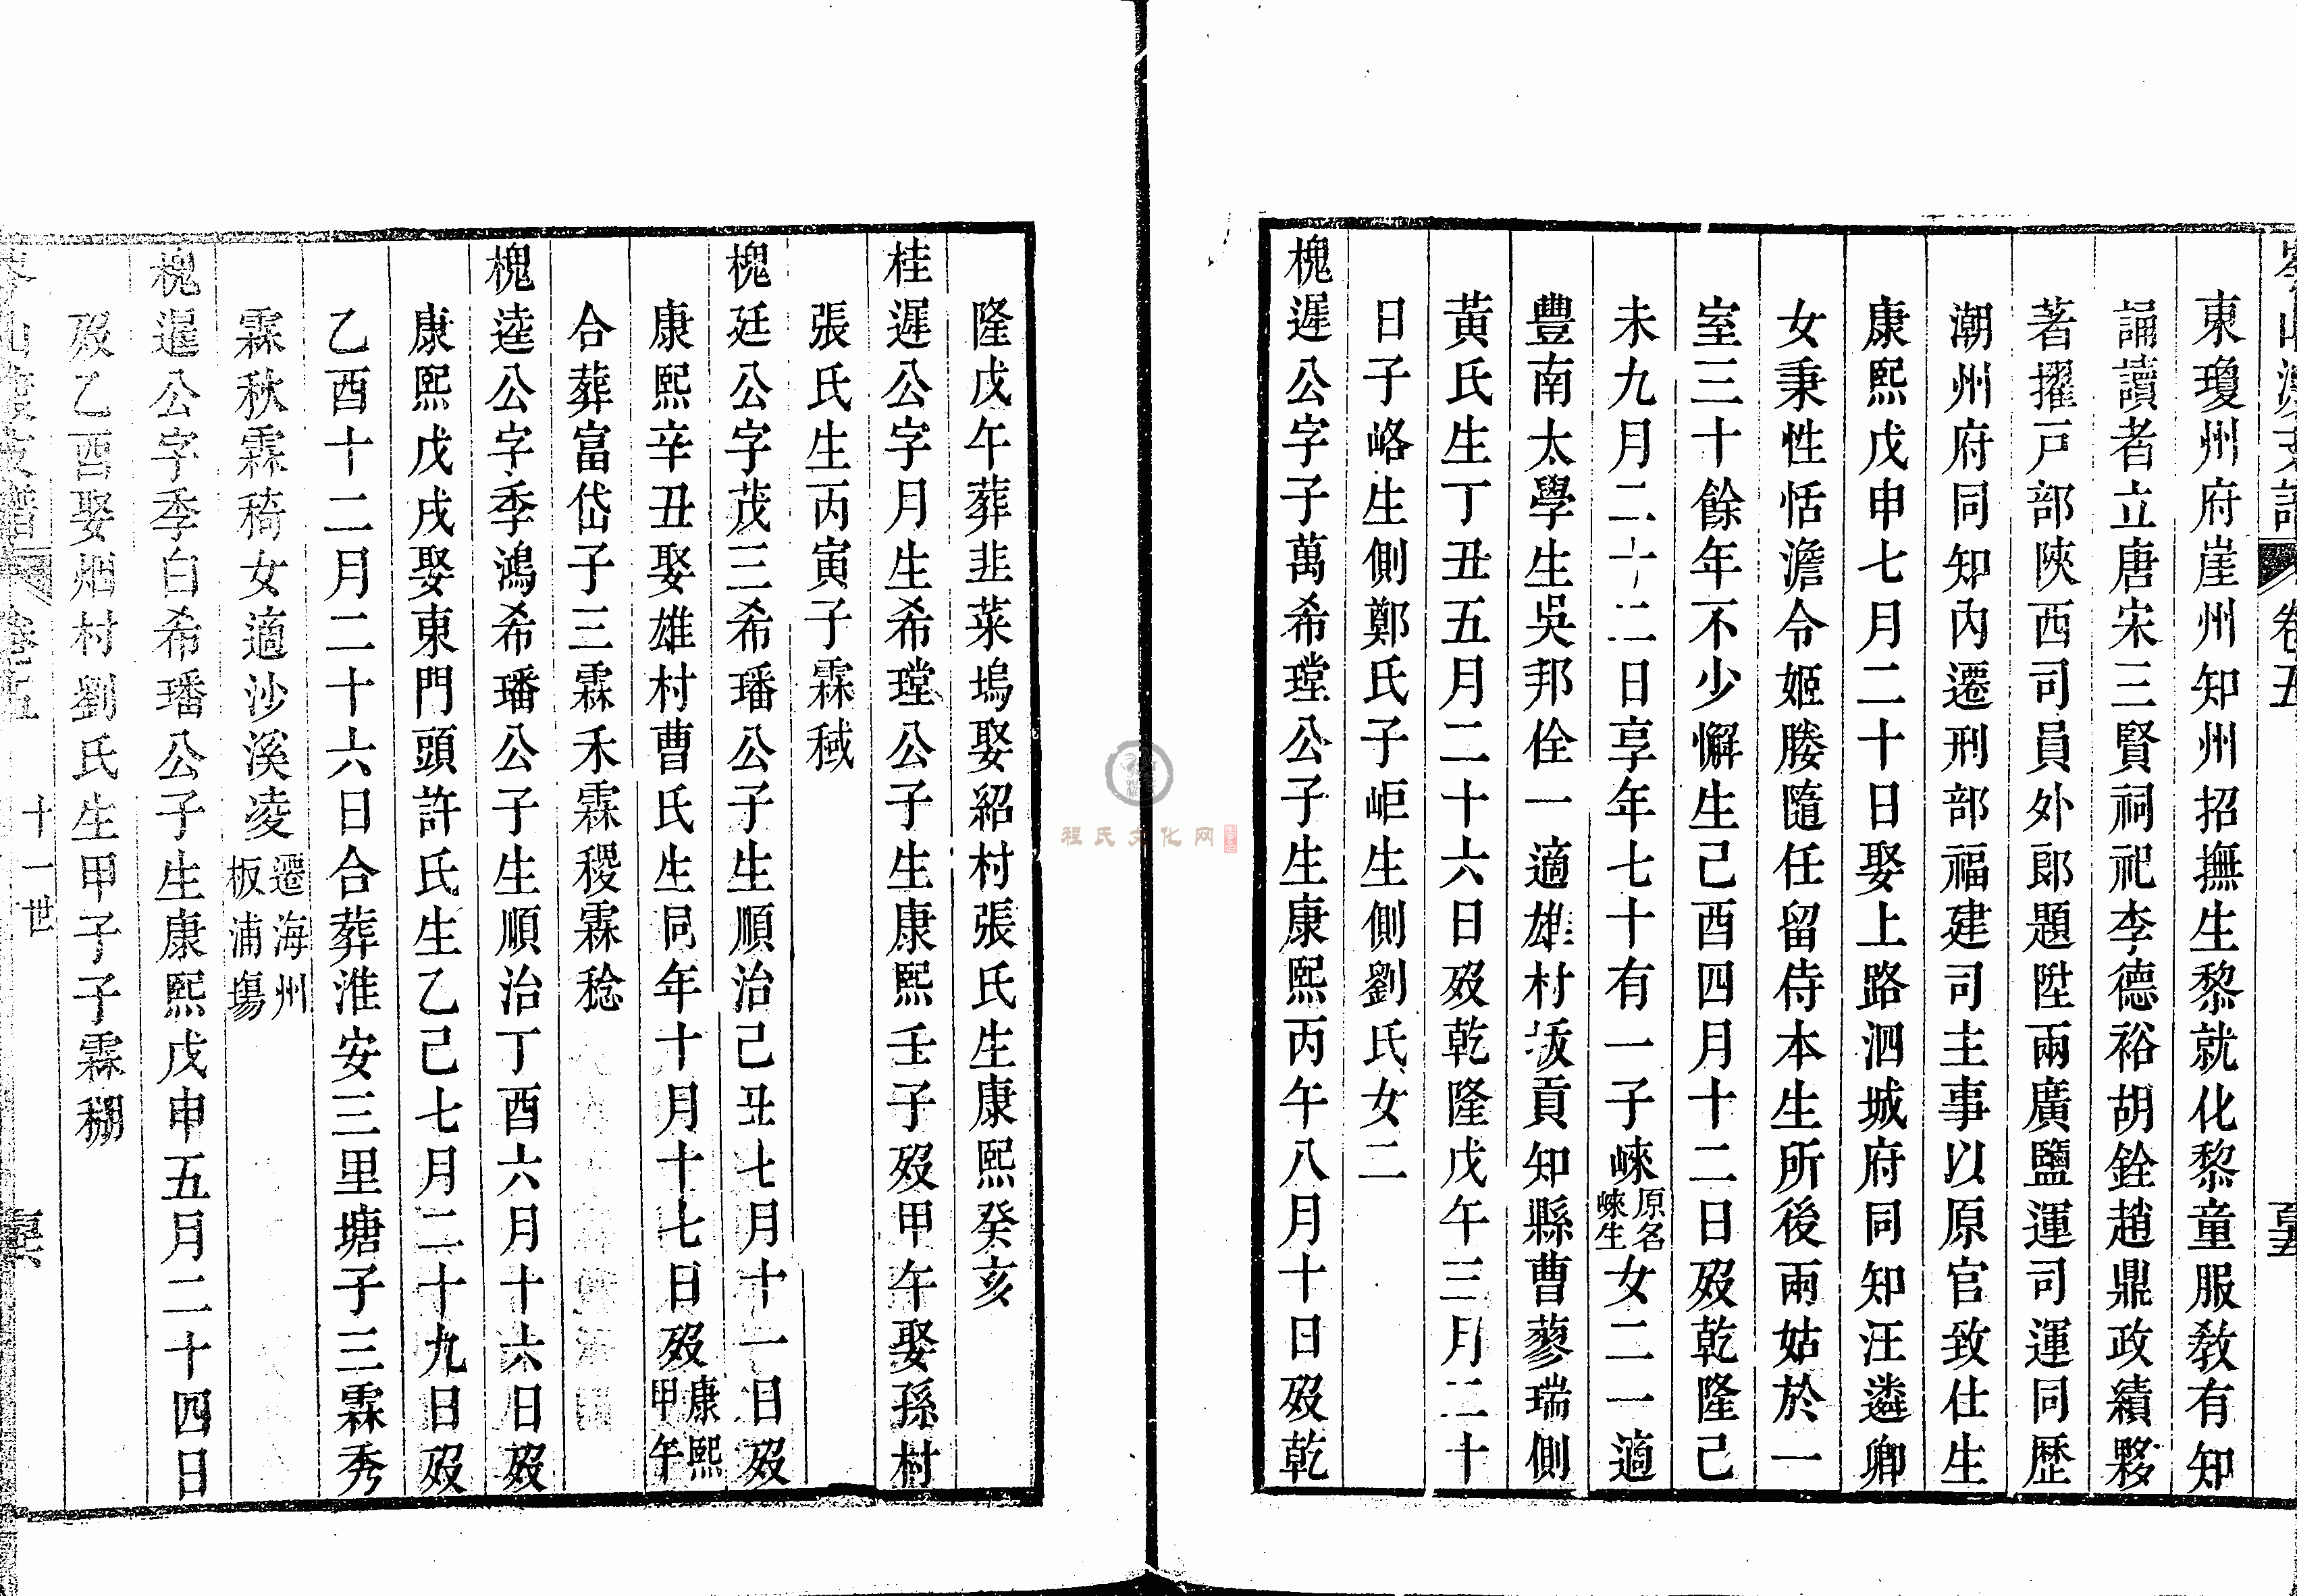 岑山渡支譜 卷五
東瓊州府崖州知州招撫生黎就化黎童服教有知
誦讀者立唐宋三賢祠祀李德裕胡銓趙鼎政績夥
著擢戸部陝西司員外郎題陞兩廣鹽運司運同歷
潮州府同知內遷刑部福建司主事以原官致仕生
康熙戊申七月二十日娶上路泗城府同知汪遴卿
女秉性恬澹令姬媵隨任留侍本生所後兩姑於一
室三十餘年不少懈生己酉四月十二日歿乾隆己
未九月二十二日享年七十有一子崍原名崍生女二一適
豐南太學生吳邦佺一適雄村拔貢知縣曹蓼瑞側
黃氏生丁丑五月二十六日歿乾隆戊午三月二十
日子峈生側鄭氏子岠生側劉氏女二
槐遲公字子萬希瑝公子生康熙丙午八月十日歿乾
隆戊午葬韭菜塢娶紹村張氏生康熙癸亥
桂遲公字月生希瑝公子生康熙壬子歿甲午娶孫村
張氏生丙寅子霖稢
槐廷公字茂三希璠公子生順治己丑七月十一日歿
康熙辛丑娶雄村曹氏生同年十月十七日歿康熙甲午
合葬富岱子三霖禾霖稷霖稔
槐逵公字季鴻希璠公子生順治丁酉六月十六日歿
康熙戊戌娶東門頭許氏生乙己七月二十九日歿
乙酉十二月二十六日合葬淮安三里塘子三霖秀
霖秋霖稦女適沙溪凌遷海州板浦場
槐暹公字季白希璠公子生康熙戊申五月二十四日
歿乙酉娶烟村劉氏生甲子子霖稝
岑山渡支譜 卷五 十一世
程氏文化网